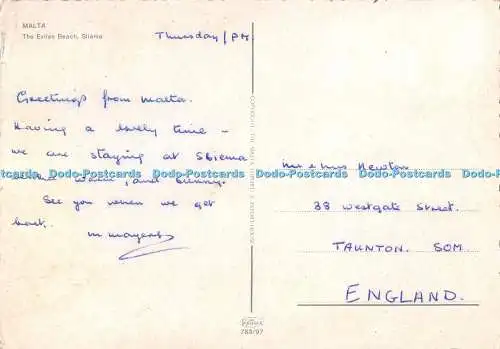 MALTA
The Exiles Beach, Sliema
Thursday/PM
Greetings from Malta.
Having a lovely time -
we are staying at Sliema
warm, and sunny.
See you when we get
back.
Mr & Mrs Newton
38 Westgate Street.
TAUNTON. SOM.
ENGLAND.
Dodo-Postcards Dodo-Postcards Dodo-Postcards Dodo-Postcards Dodo-Postcards